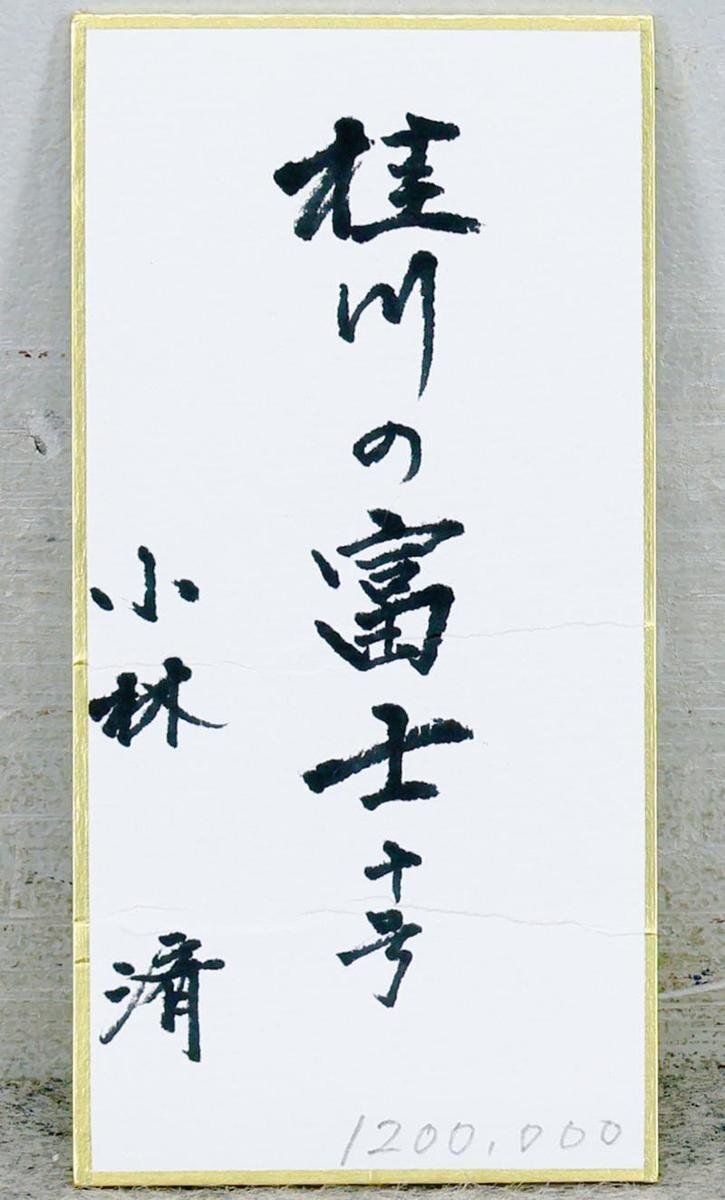 桂川の富士十号
小林 済
1200,000